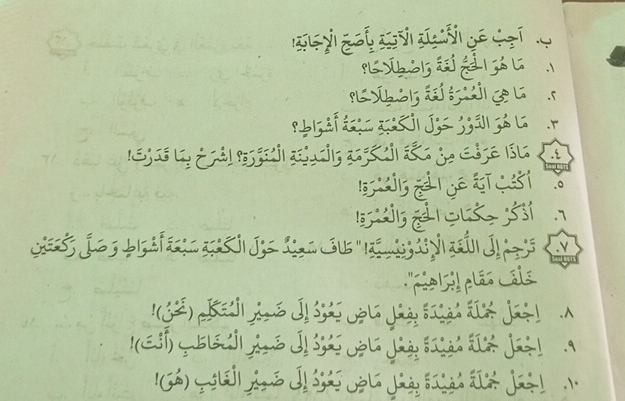 ب. اَجِبْ عَنِ الْأَسْئِلَةِ الْآتِيَةِ بِأَصَحِّ الْإِجَابَةِ!
١. مَا هُوَ الْحَجُّ لُغَةً وَاصْطِلَاحًا؟
٢. مَا هِيَ الْعُمْرَةُ لُغَةً وَاصْطِلَاحًا؟
٣. مَا هُوَ الدَّوْرُ حَوْلَ الْكَعْبَةِ سَبْعَةُ أَشْوَاطٍ؟
٤. مَاذَا عَرَفْتَ مِنْ مَكَّةَ الْمُكَرَّمَةِ وَالْمَدِيْنَةِ الْمُنَوَّرَةِ؟ اِشْرَحْ بِمَا قَدَرْتَ!
Soal HOTS
٥. اُكْتُبْ آيَةً عَنِ الْحَجِّ وَالْعُمْرَةِ!
٦. اُذْكُرْ حِكْمَاتِ الْحَجِّ وَالْعُمْرَةِ!
٧. تَرْجِمْ إِلَى اللُّغَةِ الْإِنْدُوْنِيْسِيَّةِ! "طَافَ سَعِيْدٌ حَوْلَ الْكَعْبَةِ سَبْعَةَ أَشْوَاطٍ وَصَلَّى رَكْعَتَيْنِ
Soal HOTS
خَلْفَ مَقَامِ إِبْرَاهِيْمَ".
٨. اِجْعَلْ جُمْلَةً مُفِيْدَةً بِفِعْلٍ مَاضٍ يَعُوْدُ إِلَى ضَمِيْرِ الْمُتَكَلِّمِ (نَحْنُ)!
٩. اِجْعَلْ جُمْلَةً مُفِيْدَةً بِفِعْلٍ مَاضٍ يَعُوْدُ إِلَى ضَمِيْرِ الْمُخَاطَبِ (أَنْتَ)!
١٠. اِجْعَلْ جُمْلَةً مُفِيْدَةً بِفِعْلٍ مَاضٍ يَعُوْدُ إِلَى ضَمِيْرِ الْغَائِبِ (هُوَ)!